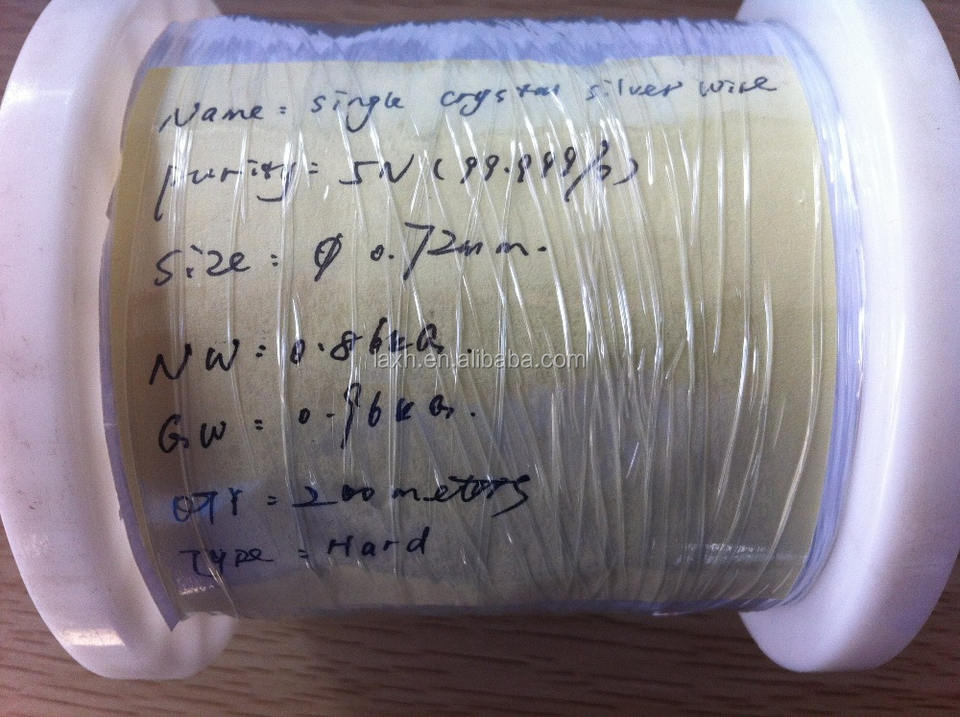 Name: single crystal silver wire
purity: 5N (99.999%)
Size: φ 0.72mm.
NW: 0.86KG.
laxh.en.alibaba.com
GW: 0.96KG.
QTY: 200 metors
TYPE: Hard